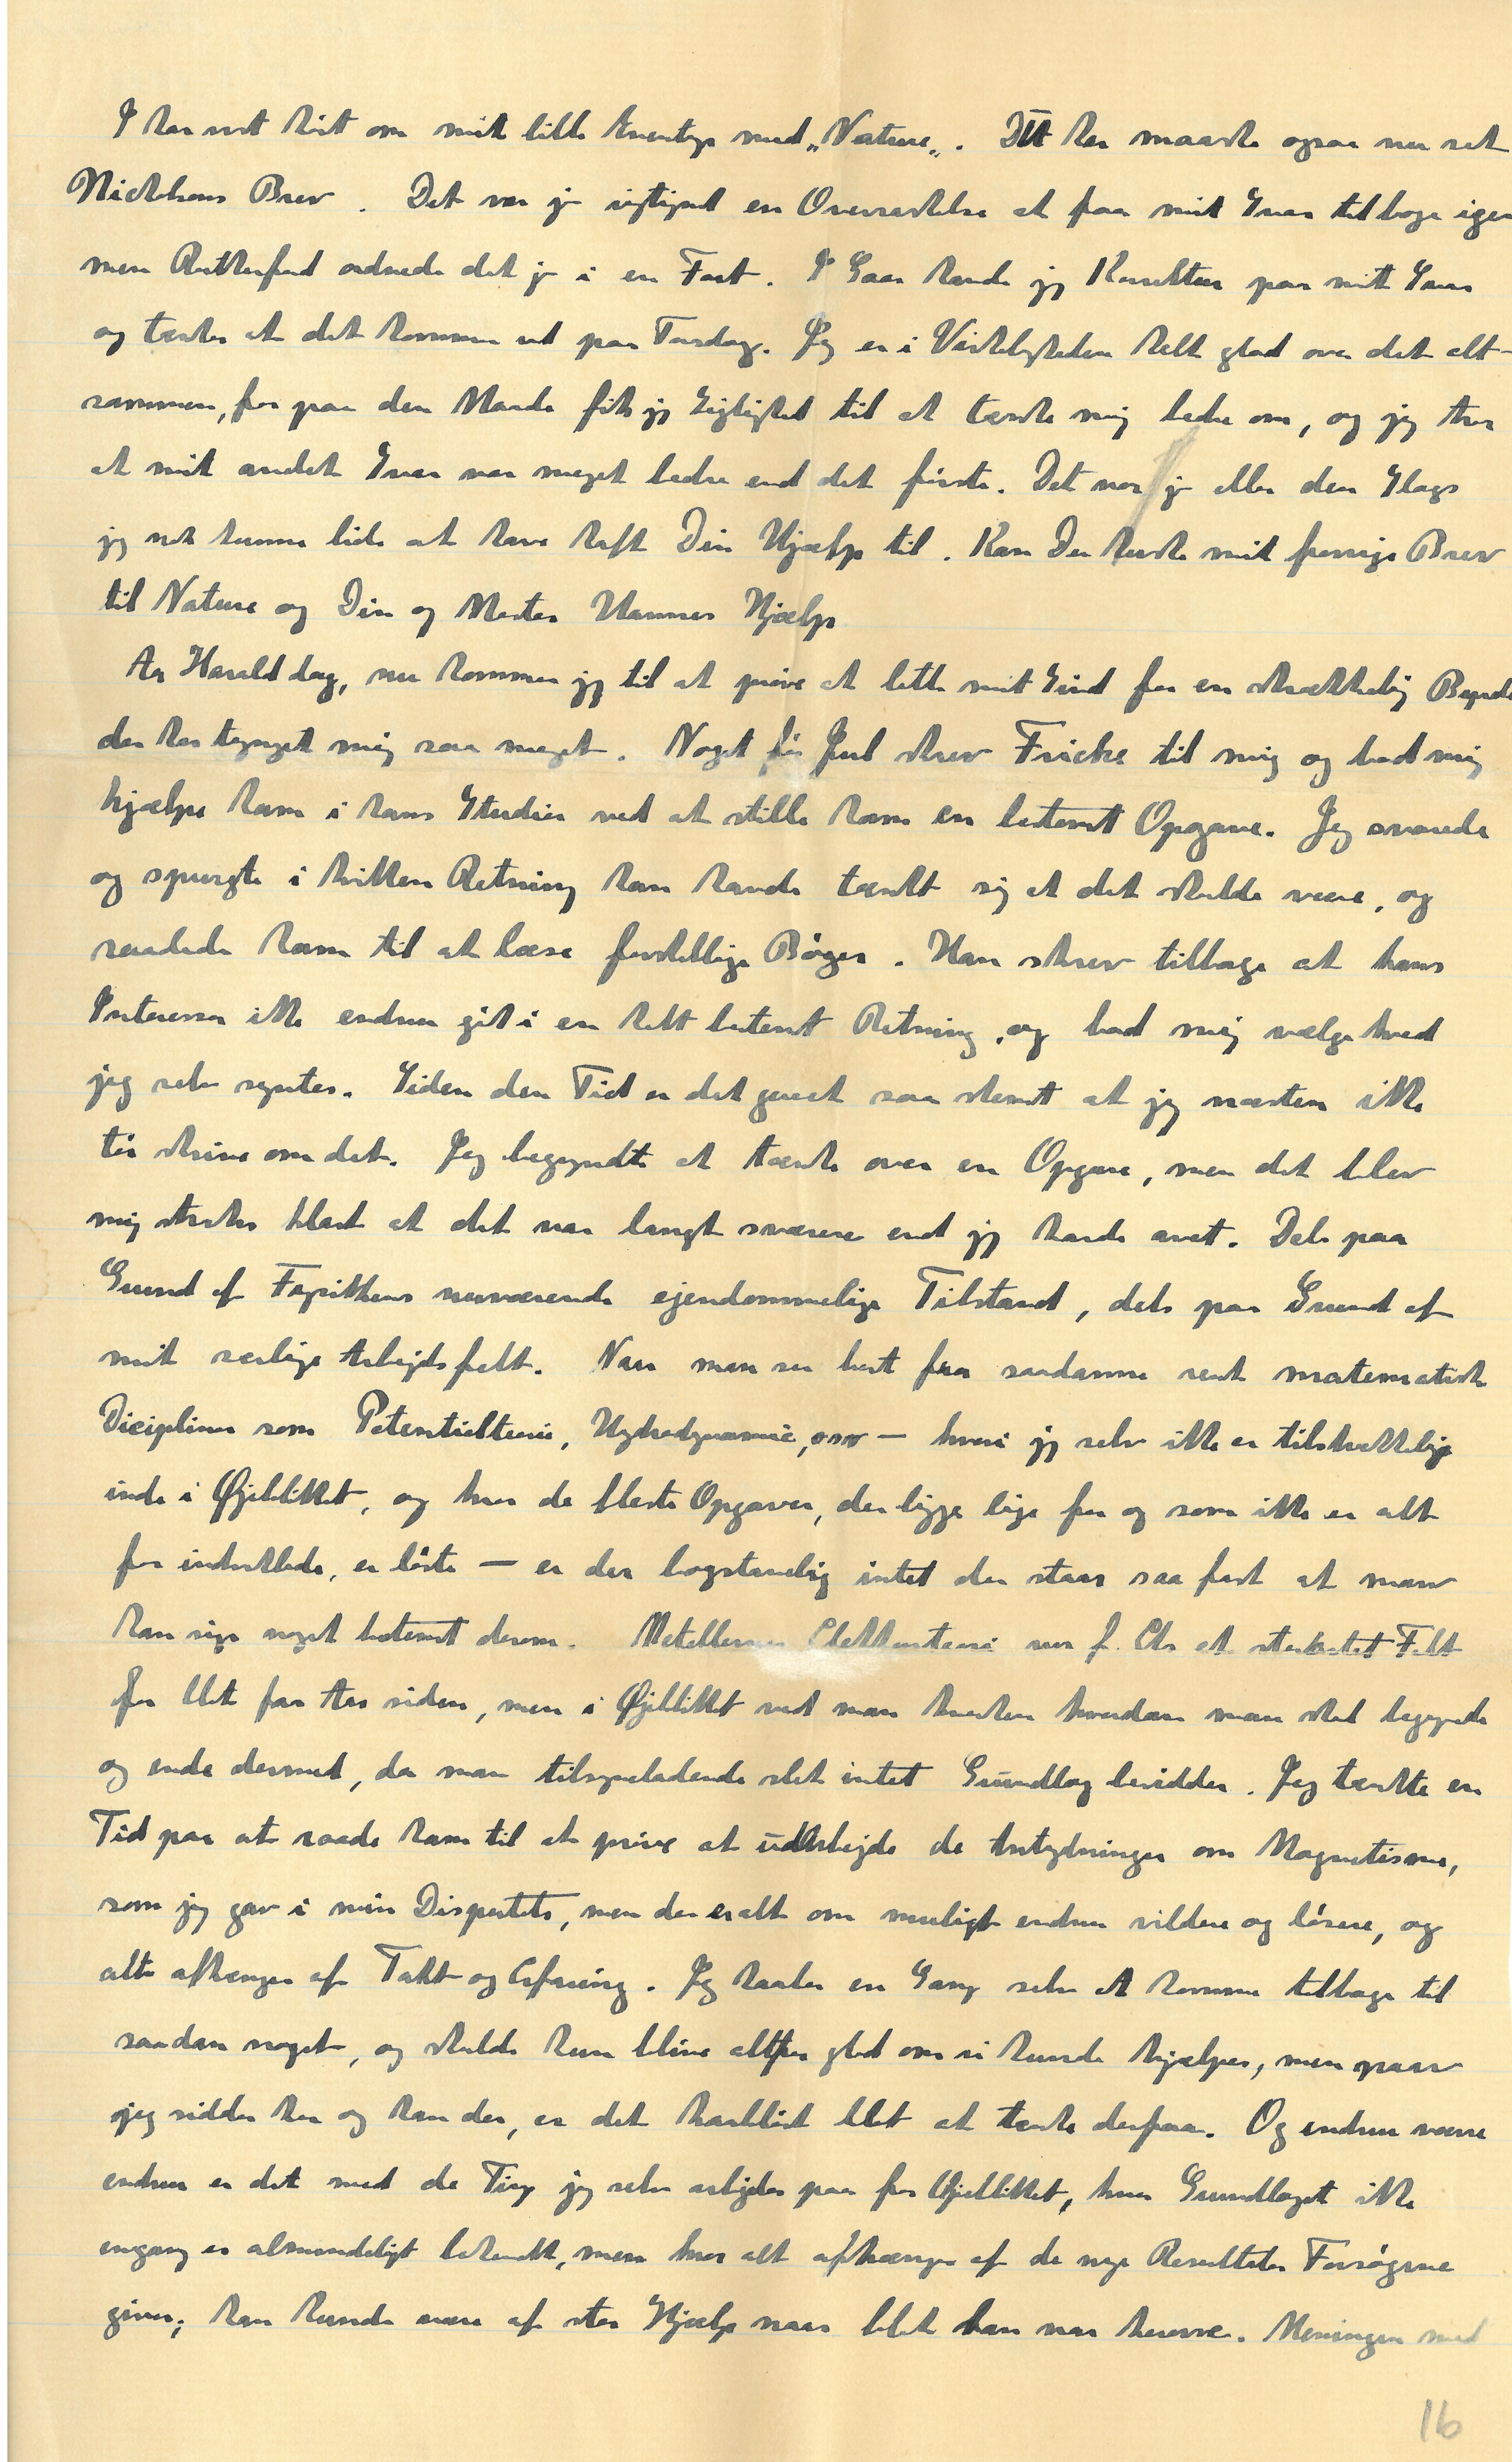 I har vist hört om mit lille Eventyr med „Nature„. I har maaske ogsaa nu set
Nicholsons Brev. Det var jo rigtignok en Overraskelse at faa mit Svar tilbage igen
men Rutherford ordnede det jo i en Fart. I Gaar havde jeg Korrektur paa mit Svar
og tænker at det kommer ud paa Torsdag. Jeg er i Virkeligheden helt glad over det alt-
sammen, for paa den Maade fik jeg Lejlighed til at tænke mig bedre om, og jeg tror
at mit andet Svar var meget bedre end det förste. Det var jo eller den Slags
jeg nok kunne lide at have haft Din Hjælp til. Kan Du huske mit forrige Brev
til Nature og Din og Moster Hannes Hjælp
Aa Harald dog, nu kommer jeg til at pröve at lette mit Sind for en skrækkelig Byrde
der har trygget mig saa meget. Noget för Jul skrev Fricke til mig og bad mig
hjælpe ham i hans Studier ved at stille ham en bestemt Opgave. Jeg svarede
og spurgte i hvilken Retning han havde tænkt sig at det skulde være, og
raadede ham til at læse forskellige Böger. Han skrev tilbage at hans
Interesser ikke endnu gik i en helt bestemt Retning, og bad mig vælge hvad
jeg selv syntes. Siden den Tid er det gaaet saa slemt at jeg næsten ikke
tör skrive om det. Jeg begyndte at tænke over en Opgave, men det blev
mig straks klart at det var langt sværere end jeg havde anet. Dels paa
Grund af Fysikkens nuværende ejendommelige Tilstand, dels paa Grund af
mit særlige Arbejdsfelt. Naar man ser bort fra saadanne rent matematisk
Dicipliner som Potentialteori, Hydrodynamic, osv — hvori jeg selv ikke er tilstrækkelig
inde i Øjeblikket, og hvor de fleste Opgaver, der ligge lige for og som ikke er alt
for indviklede, er löste — er der bogstavelig intet der staar saa fast at man
kan sige noget bestemt derom. Metallernes Elektronteori var f. Eks et sterkstet Felt
for blot faa Aar siden, men i Øjeblikket ved man knerken hvordan man skal begynde
og ende dermed, da man tilsyneladende slet intet Grundlag besidder. Jeg tænkte en
Tid paa at raade ham til at pröve at udarbejde de Antydninger om Magnetisme,
som jeg gav i min Disputats, men der er alt om muligt endnu vildere og lösere, og
alt afhænger af Takt og Erfaring. Jeg haaber en Gang selv at komme tilbage til
saadan noget, og skulde kun blive altfor glad om vi kunde hjælpes, men naar
jeg sidder her og han der, er det haablöst blot at tænke derpaa. Og endnu værre
endnu er det med de Ting jeg selv arbejder paa for Øjeblikket, hvor Grundlaget ikke
engang er almindeligt bekendt, men hvor alt afhænger af de nye Resultater Forsögene
giver; han kunde være af stor Hjælp naar blot han var herovre. Meningen med
16